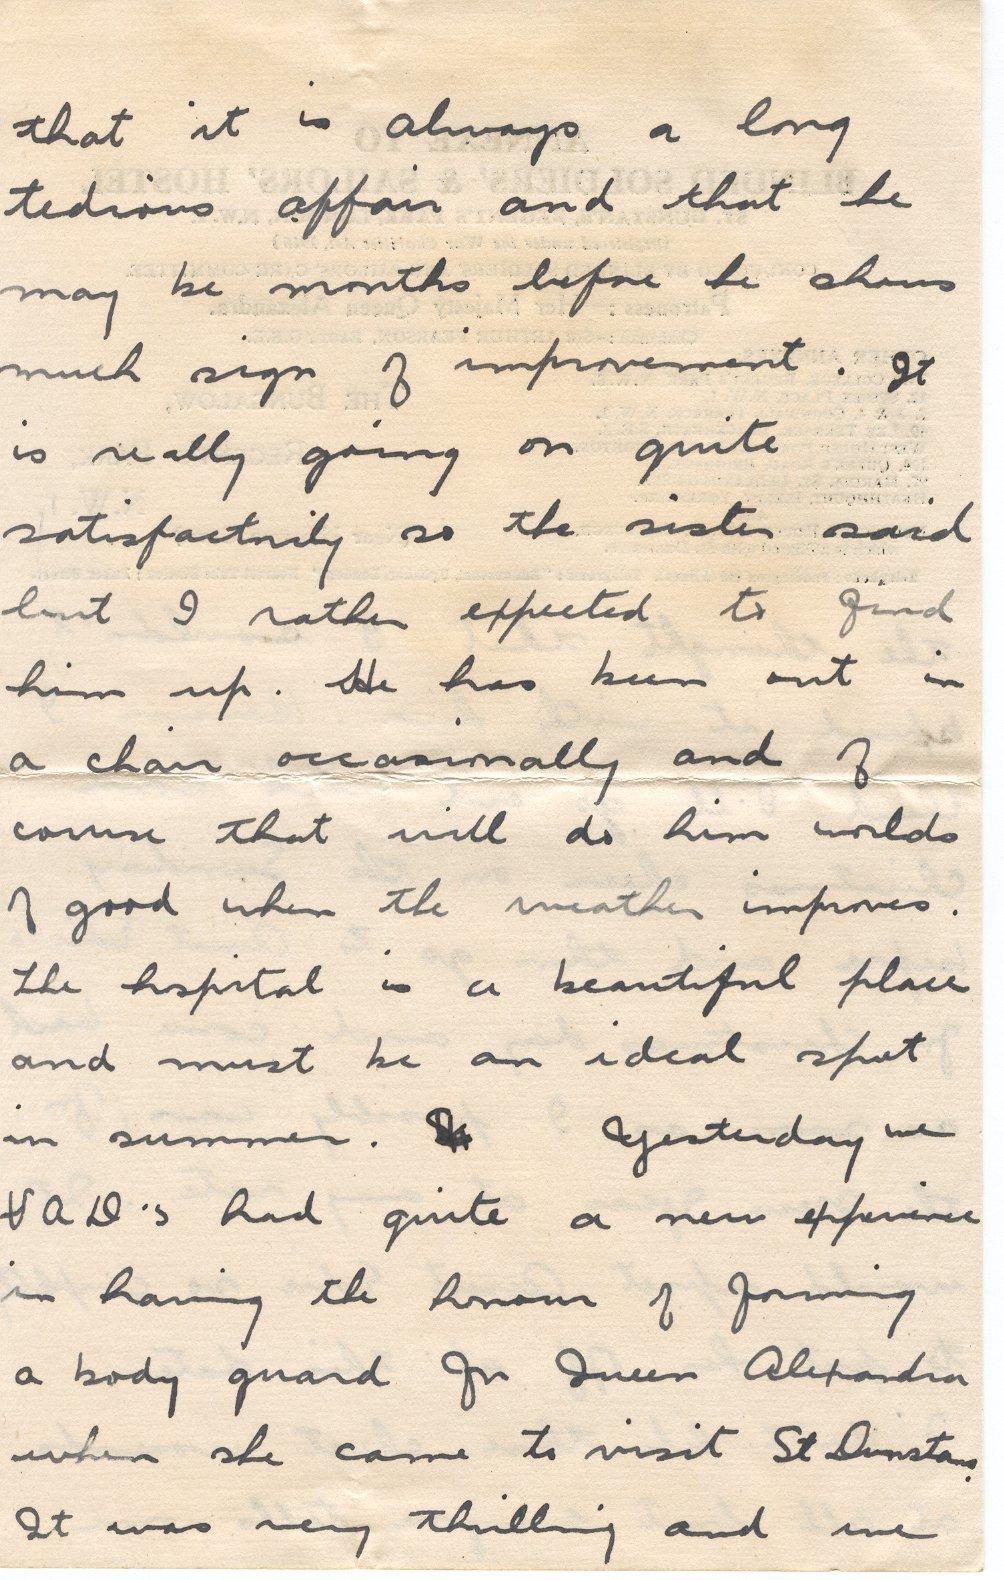 that it is always a long
tedious affair and that he
may be months before he shows
much sign of improvement. It
is really going on quite
satisfactorily so the sister said
but I rather expected to find
him up. He has been out in
a chair occasionally and of
course that will do him worlds
of good when the weather improves.
The hospital is a beautiful place
and must be an ideal spot
in summer. Yesterday we
VAD's had quite a new experience
in having the honour of forming
a body guard for Queen Alexandra
when she came to visit St Dunstans.
It was very thrilling and we